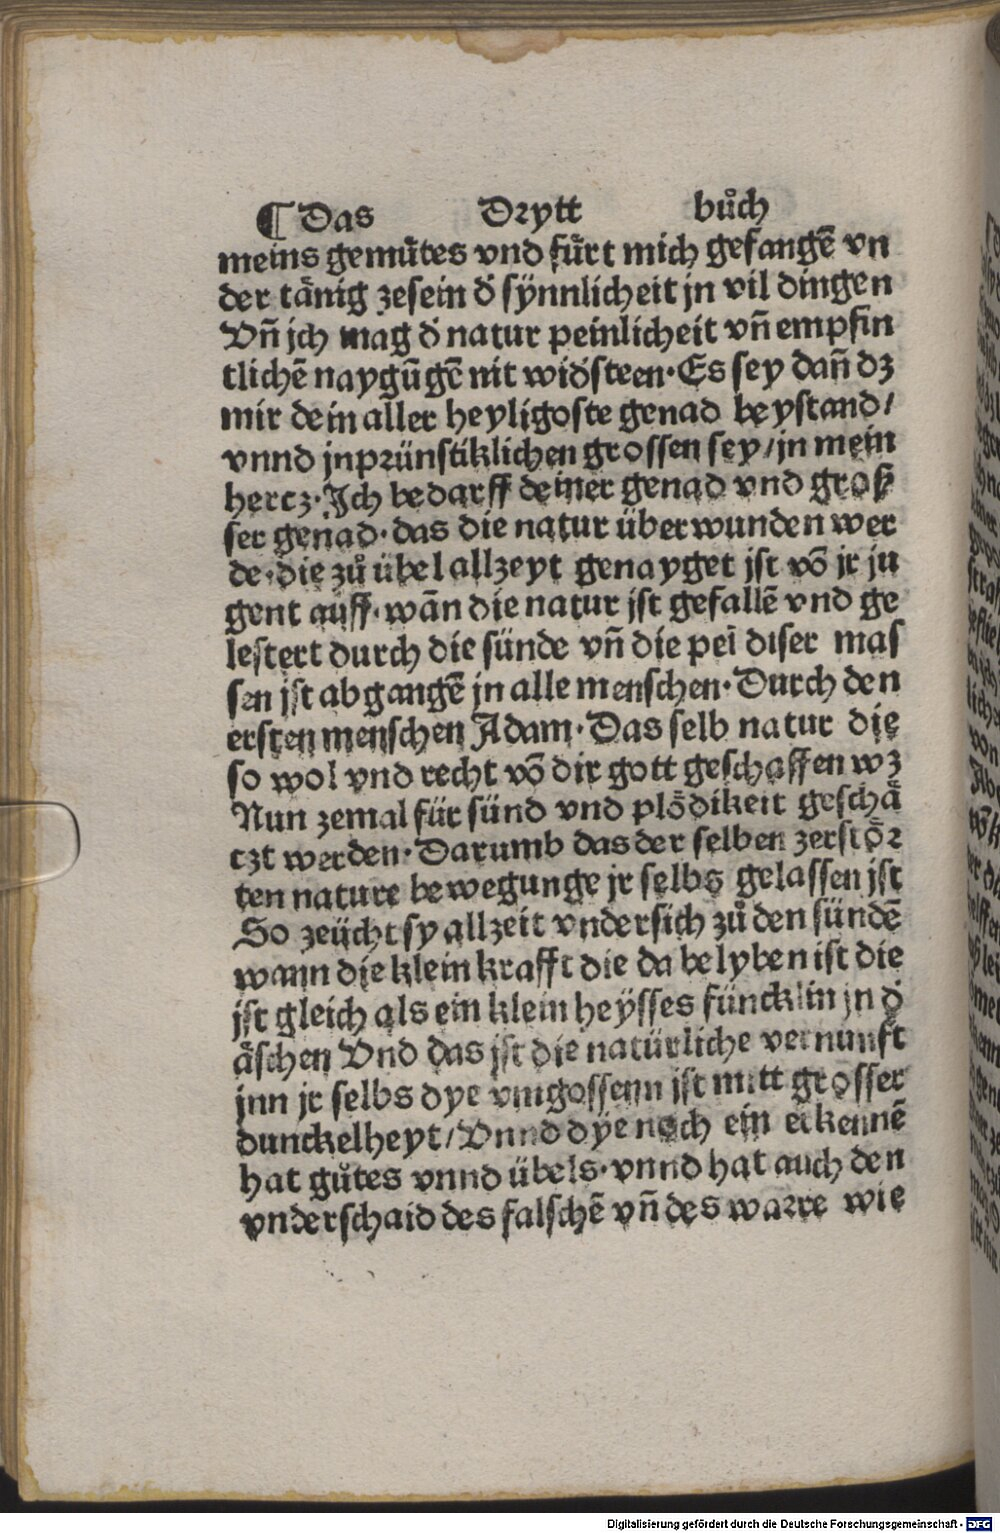 ¶ Das Drytt bůch
meins gemůtes vnd fůrt mich gefangē vn
der tänig zesein đ sÿnnlicheit jn vil dingen
Vn̄ jch mag đ natur peinlicheit vn̄ empfin
tlichē naygūgē nit widsteen·Es sey dan̄ dz
mir dein aller heyligoste genad beystand/
vnnd jnprünstiklichen grossen sey/jn mein
hercz·Jch bedarff deiner genad vnd groß
ser genad·das die natur überwunden wer
de·die zů übel allzeyt genayget jst võ jr ju
gent auff·wān die natur jst gefallē vnd ge
lestert durch die sünde vn̄ die pei diser mas
sen jst abgangē jn alle menschen·Durch den
ersten menschen Adam·Das selb natur die
so wol vnd recht võ dir gott geschaffen wz
Nun zemal für sünd vnd plödikeit geschä
czt werden·Darumb das der selben zerstör
ten nature bewegunge jr selbs gelassen jst
So zeücht sy allzeit vndersich zů den sündē
wann die klein krafft die da belyben ist die
jst gleich als ein klein heÿsses füncklin jn đ
äschen Vnd das jst die natürliche vernunft
jnn jr selbs dye vmgossenn jst mitt grosser
dunckelheyt/Vnnd dÿe noch ein erkennē
hat gůtes vnnd übels·vnnd hat auch den
vnderschaid des falschē vn̄ des warre wie
Digitalisierung gefördert durch die Deutsche Forschungsgemeinschaft - DFG